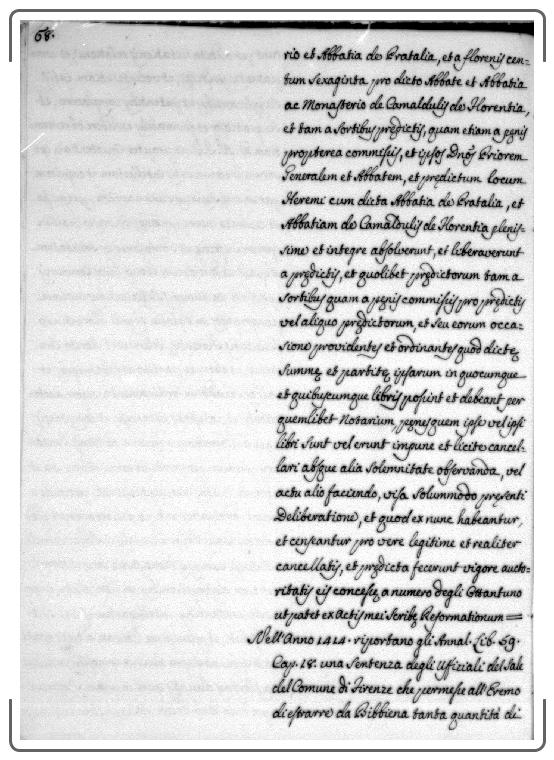 68.
rio et Abbatia de Pratalia, et a florenis cen=
tum sexaginta pro dicto Abbate et Abbatia
ac Monasterio de Camaldulis de Florentia,
et tam a sortibus prędictis, quam etiam a pęnis
propterea commissis, et ipsos Dnos Priorem
Generalem et Abbatem, et prędictum locum
Heremi cum dicta Abbatia de Pratalia, et
Abbatiam de Camaldulis de Florentia plenis-
sime et integre absolverunt, et liberaverunt
a prędictis, et quolibet prędictorum tam a
sortibus quam a pęnis commissis pro prędictis
vel aliquo prędictorum, et seu eorum occa-
sione providentes et ordinantes quod dictę
summę et partitę ipsarum in quocumque
et quibuscumque libris possint et debeant per
quemlibet Notarium penes quem ipse vel ipsi
libri sunt vel erunt impune et licite cancel-
lari absque alia solemnitate observanda, vel
actu alio faciendo, visa solummodo pręsenti
Deliberatione, et quod ex nunc habeantur,
et censeantur pro vere legitime et realiter
cancellatis, et prędicta fecerunt vigore aucto-
ritatis eis concessę a numero degli Ottantuno
ut patet ex Actis mei Scribę Reformationum =
Nell'Anno 1414. riportano gli Annal. Lib. 59.
Cap. 18. una Sentenza degli Uffiziali del Sale
del Comune di Firenze che permesse all'Eremo
di estrarre da Bibbiena tanta quantità di